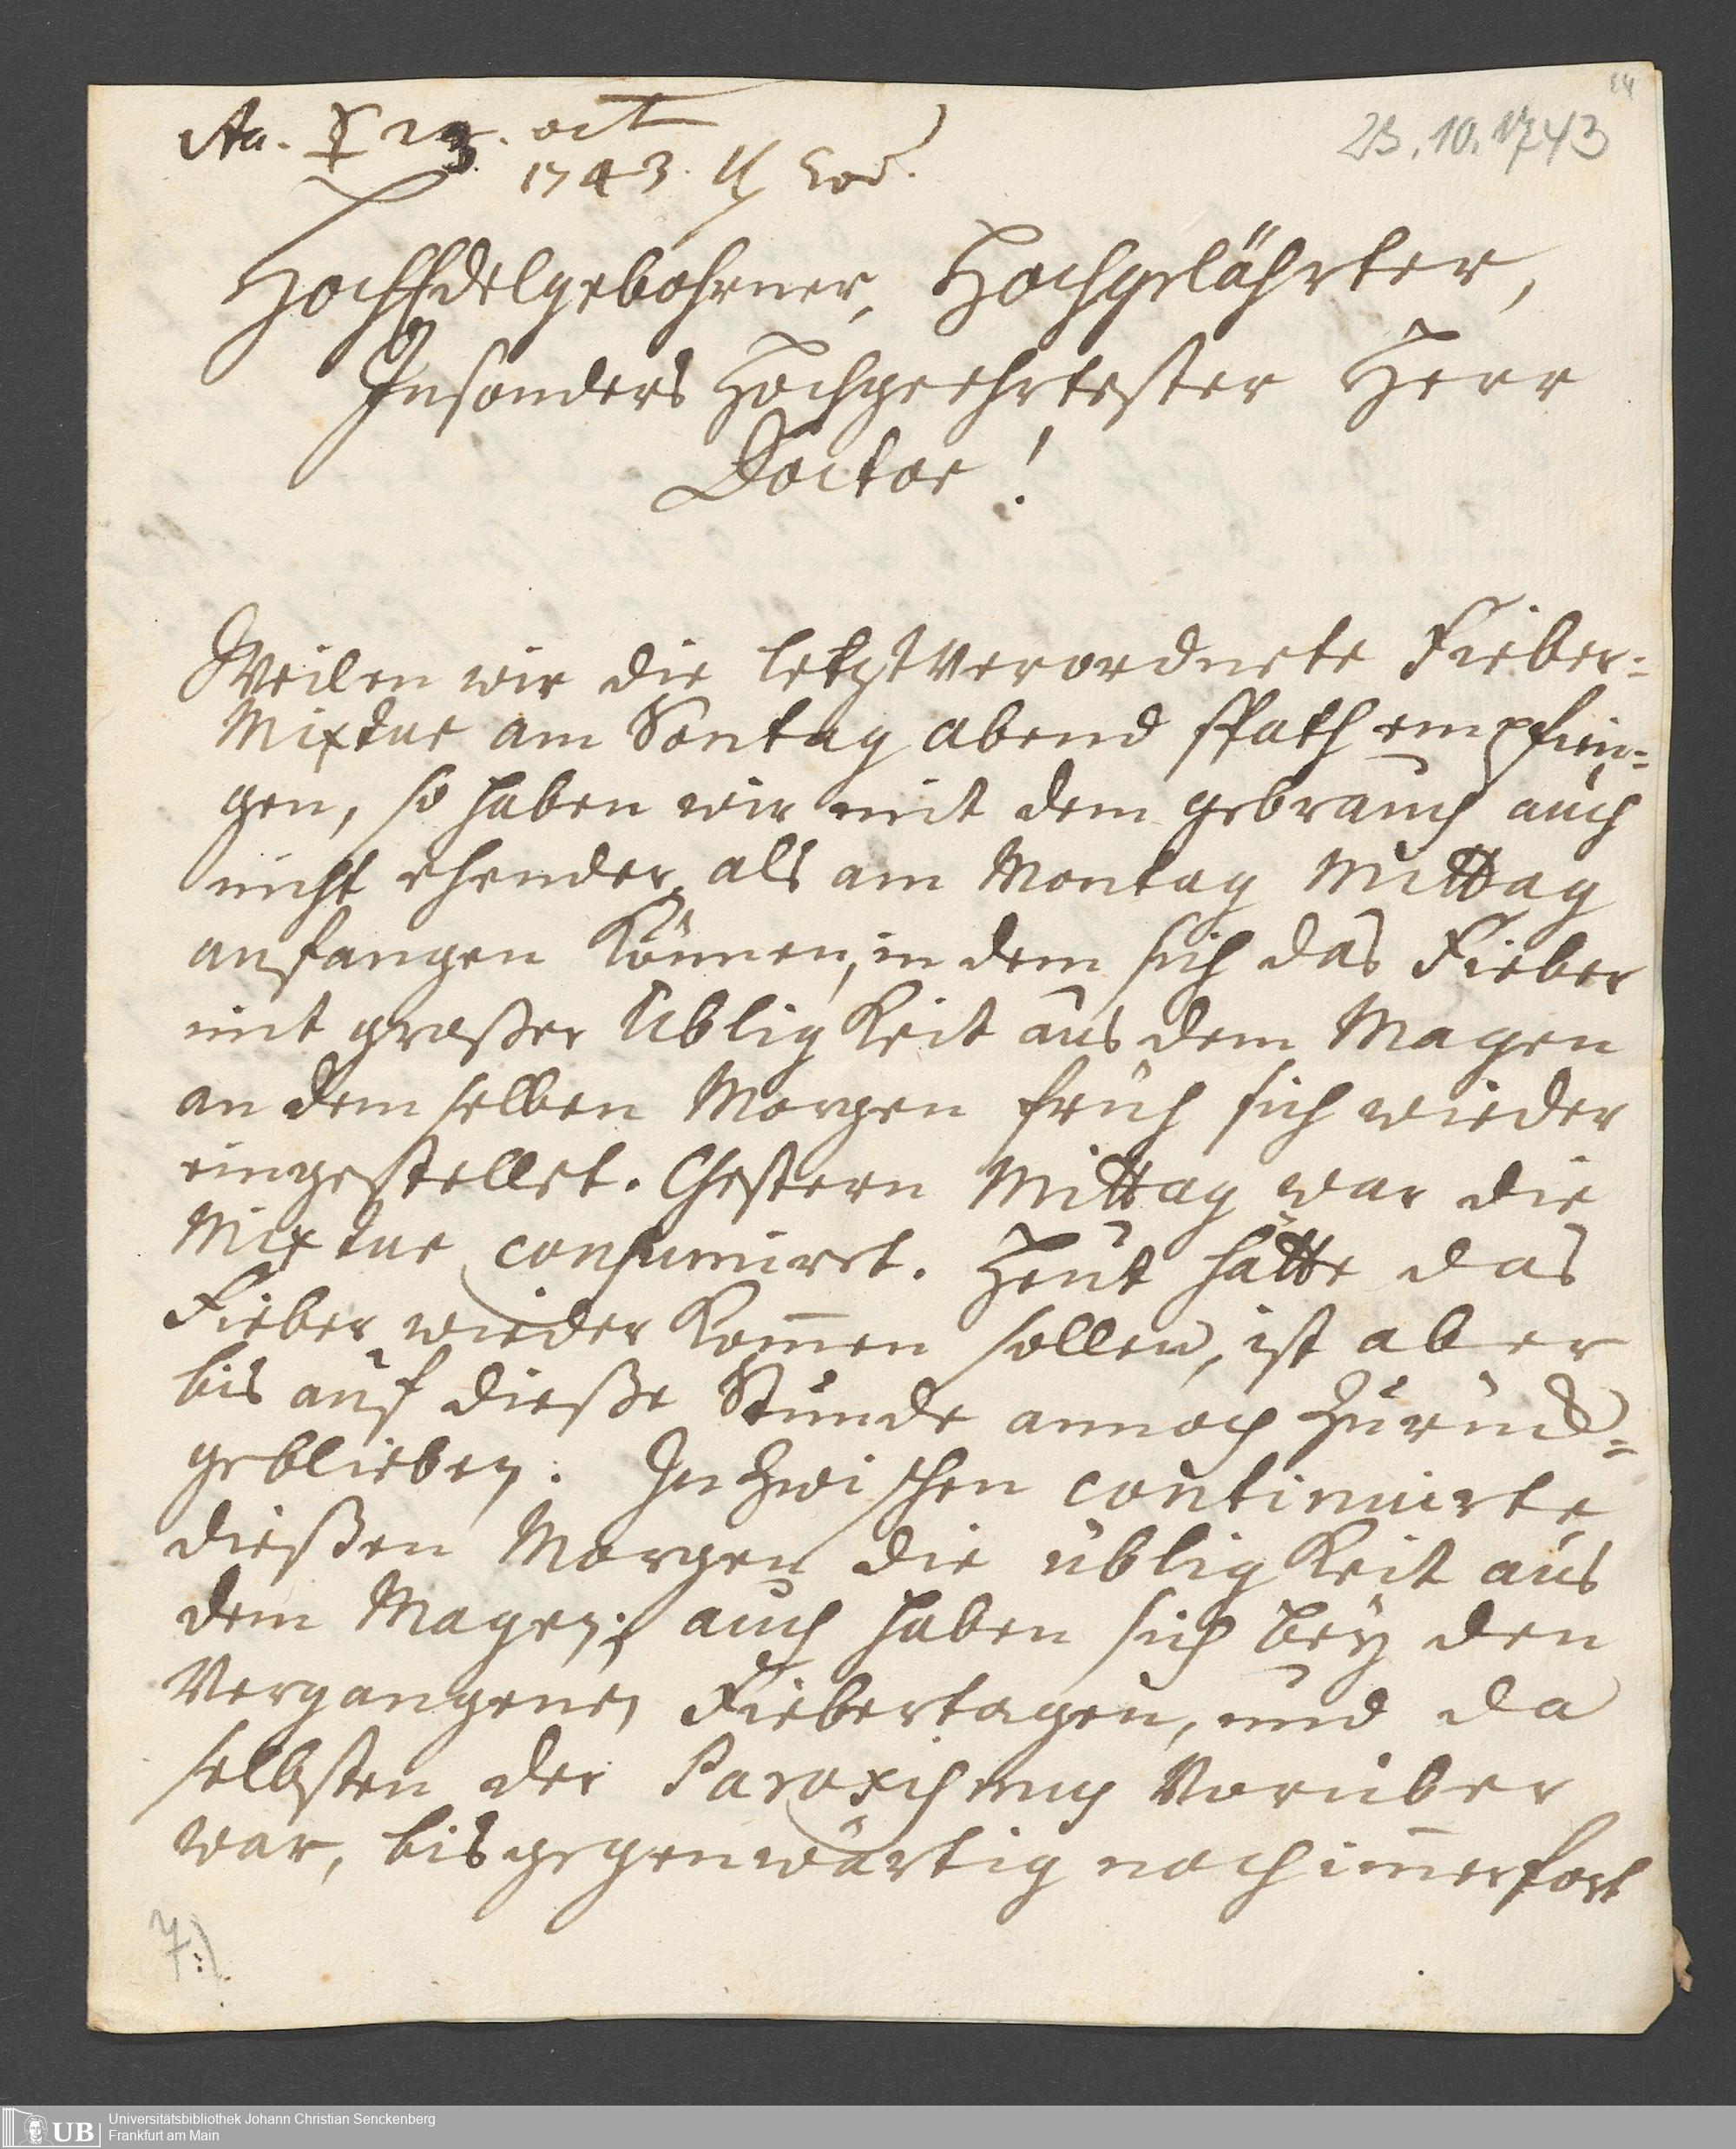 14
23.10.1743
Aa. ☿ 23. oct
1743. eod.
HochEdelgebohrner, Hochgelährter,
Insonders Hochgeehrtester Herr
Doctor!
Weilen wir die letztverordnete Fieber=
Mixtur am Sontag abend spath empfin=
gen, so haben wir mit dem gebrauch auch
nicht ehender als am Montag Mittag
anfangen Können, in dem sich das Fieber
mit großer Ubligkeit aus dem Magen
an dem selben Morgen früh sich wieder
eingestellet. Gestern Mittag war die
Mixtur consumirt. Heut hätte das
Fieber wieder Kom̅en sollen, ist aber
bis auf dieße Stunde annoch Zurück=
geblieben. Inzwischen continuirte
dießen Morgen die übligkeit aus
dem Magen; auch haben sich bey den
Vergangenen Fiebertagen, und da
selbsten der Paroxismus Vorüber
war, bis gegenwärtig noch im̅erfort
7.)
UB
Universitätsbibliothek Johann Christian Senckenberg
Frankfurt am Main